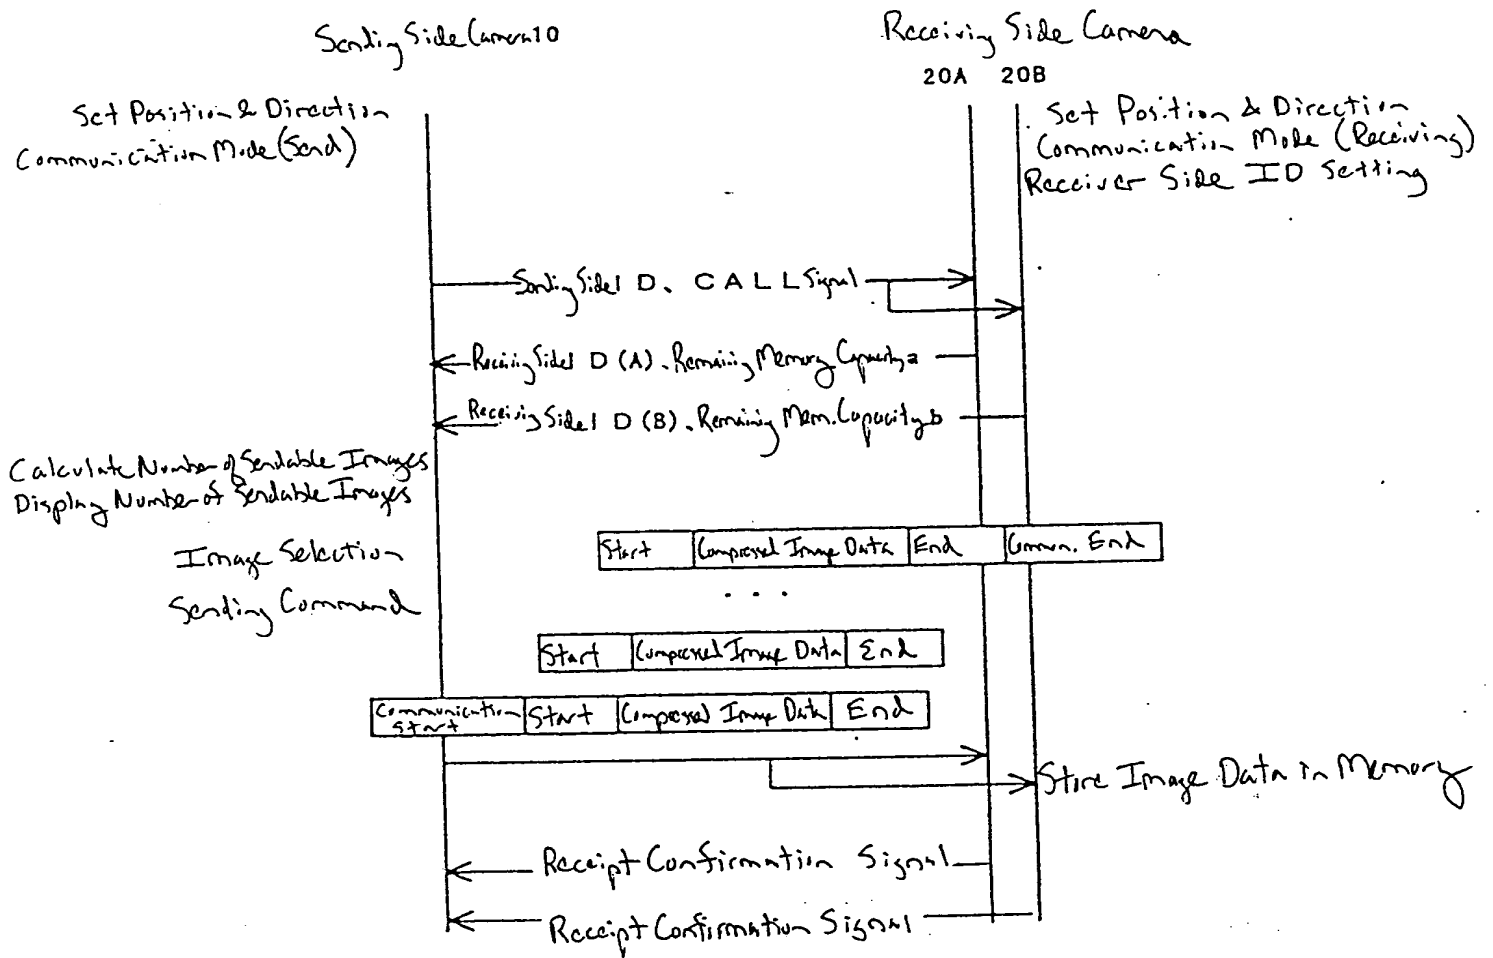 Sending Side Camera 10
Receiving Side Camera
20A 20B
Set Position & Direction
Communication Mode (Send)
Set Position & Direction
Communication Mode (Receiving)
Receiver Side ID Setting
Sending Side I D、 C A L L Signal
Receiving Side I D (A)、Remaining Memory Capacity a
Receiving Side I D (B)、Remaining Mem. Capacity b
Calculate Number of Sendable Images
Display Number of Sendable Images
Image Selection
Sending Command
Start Compressed Image Data End Commun. End
. . .
Start Compressed Image Data End
Communication Start Start Compressed Image Data End
Store Image Data in Memory
Receipt Confirmation Signal
Receipt Confirmation Signal